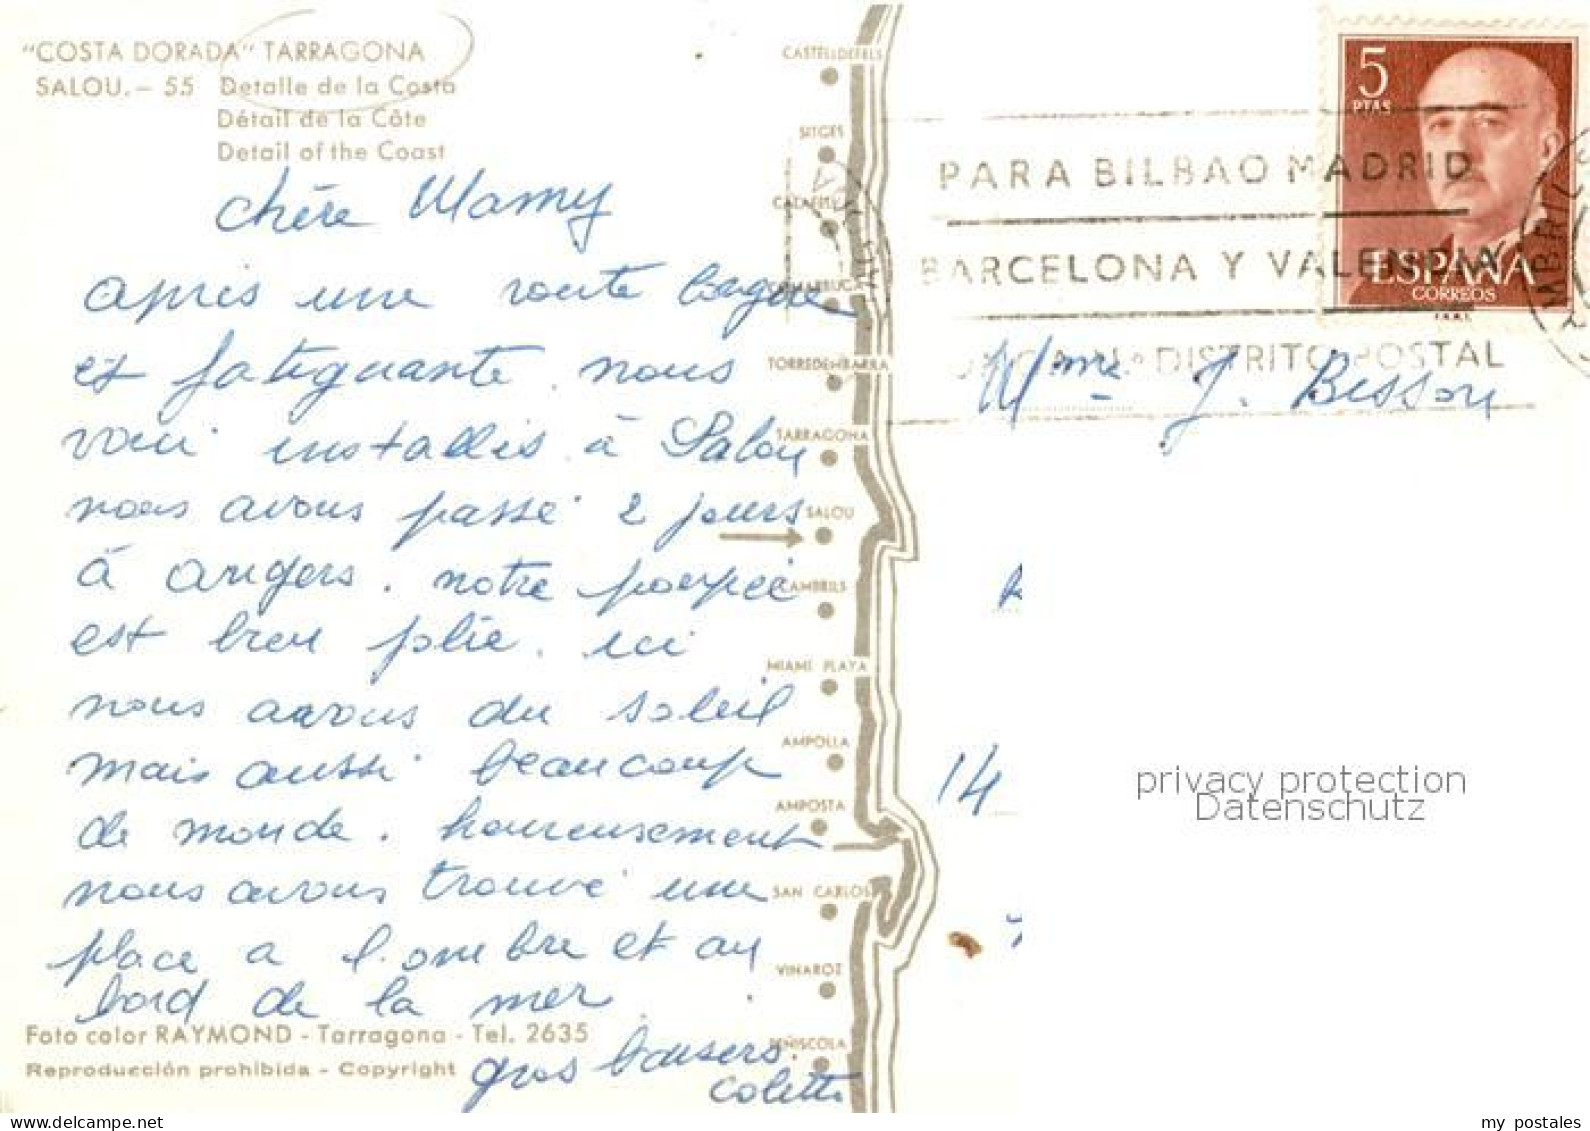 "COSTA DORADA" TARRAGONA
SALOU. - 55 Detalle de la Costa
Détail de la Côte
Detail of the Coast
chère Mamy
après une route longue
et fatiguante nous
voici installés à Salou
nous avons passé 2 jours
à angers. notre poupée
est bien jolie. ici
nous avons du soleil
mais aussi beaucoup
de monde. heureusement
nous avons trouvé une
place a l'ombre et au
bord de la mer
gros baisers.
Colette
Foto color RAYMOND - Tarragona - Tel. 2635
Reproducción prohibida - Copyright
CASTELLDEFELS
SITGES
CALAFELL
COMARRUGA
TORREDEMBARRA
TARRAGONA
SALOU
CAMBRILS
MIAMI PLAYA
AMPOLLA
AMPOSTA
SAN CARLOS
VINAROZ
PEÑISCOLA
PARA BILBAO MADRID
BARCELONA Y VALENCIA
PONGA Nº DISTRITO POSTAL
5
PTAS
ESPAÑA
CORREOS
Mme J. Besson
14
privacy protection
Datenschutz
my postales